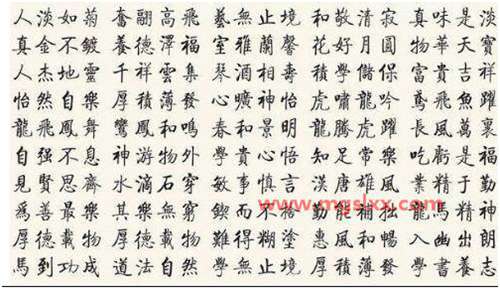 人淡如菊 奮翮高飛 藝無止境 和敬清寂 真味是淡
真金不鍍 養德澤福 室雅蘭馨 花好月圓 物華天寶
人杰地靈 千祥雲集 琴 相壽 學儲 富貴吉祥
怡然自樂 厚積薄發 心曠神怡 虎嘯龍吟 鳶飛魚躍
龍飛鳳舞 鸞鳳和鳴 春和景明 龍騰虎躍 長風萬裏
自强不息 神游物外 學貴心悟 知足常樂 吃虧是福
見賢思齊 水滴石穿 敏事慎言 漢唐雄風 業精于勤
爲善最樂 其樂無窮 鍥而不捨 勤能補拙 龍馬精神
厚德載物 厚德載物 難得糊塗 惠風和暢 入幽出朗
馬到功成 道法自然 學無止境 厚積薄發 學書養志
www.mgslxx.com